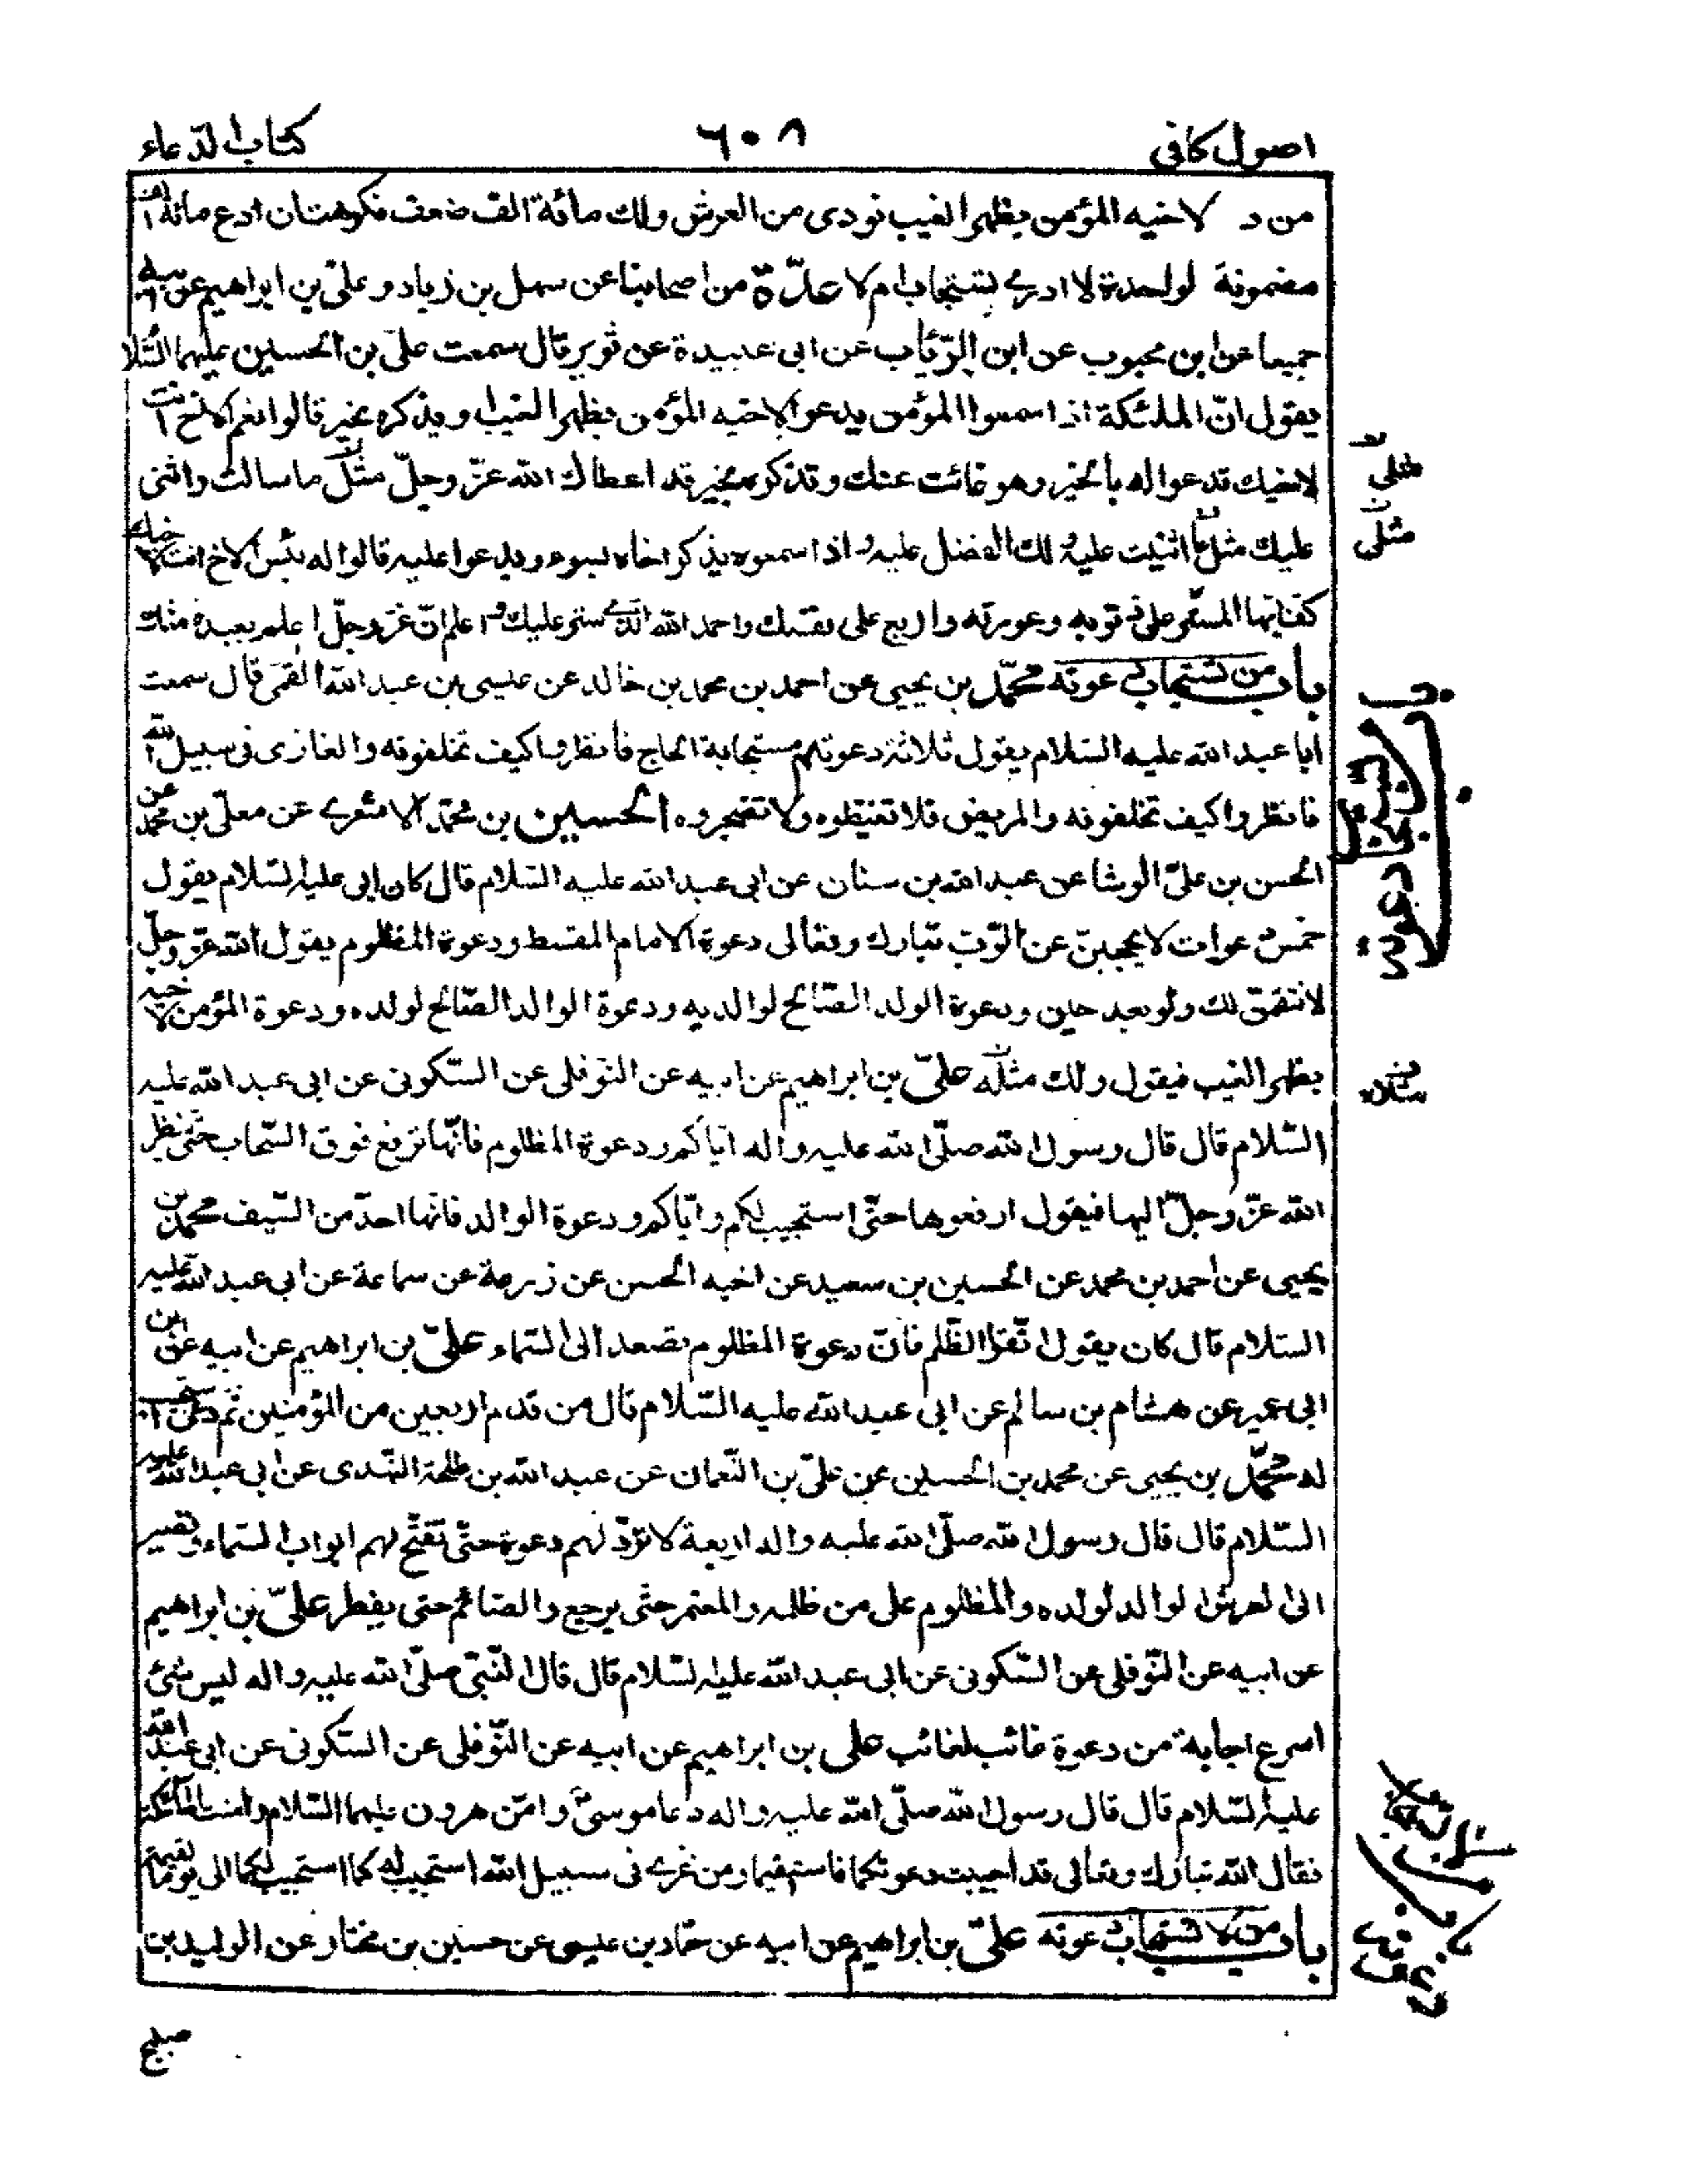 اصول كافى
٦٠٨
كتاب الدّعاء
من د لاخيه المؤمن بظهر الغيب نودى من العرش ولك مائة الف ضعف فكرهت ان ادع مائة الف
مضمونة لواحدة لا ادرى تستجاب ام لا عدّة من اصحابنا عن سهل بن زياد وعلىّ بن ابراهيم عن ابيه
جميعا عن ابن محبوب عن ابن الرّئاب عن ابى عبيدة عن ثوير قال سمعت علىّ بن الحسين عليهما السّلا
يقول انّ الملئكة اذا سمعوا المؤمن يدعو لاخيه المؤمن بظهر الغيب او يذكره بخير قالوا نعم الاخ انت
لاخيك تدعو اله بالخير وهو غائب عنك وتذكره بخير قد اعطاك الله عزّ وجلّ مثل ما سالت واثنى
عليك مثل ما اثنيت عليه ولك الفضل عليه واذا سمعوه يذكر اخاه بسوء ويدعوا عليه قالوا له بئس الاخ انت لاخيك
كفّ ايّها المستّر على ذنوبه وعورته واربع على نفسك واحمد الله الّذى ستر عليك واعلم انّ عزّ وجلّ اعلم بعبده منك
باب من تستجاب دعوته محمّد بن يحيى عن احمد بن محمد بن خالد عن عيسى بن عبد الله القمّى قال سمعت
ابا عبد الله عليه السّلام يقول ثلاثة دعوتهم مستجابة الحاج فانظروا كيف تخلفونه والغازى فى سبيل الله
فانظروا كيف تخلفونه والمريض فلا تغيظوه ولا تضجروه الحسين بن محمّد الاشعرى عن معلّى بن محمّد عن
الحسن بن علىّ الوشا عن عبد الله بن سنان عن ابى عبد الله عليه السّلام قال كان ابى عليه السّلام يقول
خمس دعوات لا يحجبن عن الرّبّ تبارك وتعالى دعوة الامام المقسط ودعوة المظلوم يقول الله عزّ وجلّ
لانتقمنّ لك ولو بعد حين ودعوة الولد الصّالح لوالديه ودعوة الوالد الصّالح لولده ودعوة المؤمن لاخيه
بظهر الغيب فيقول ولك مثله علىّ بن ابراهيم عن ابيه عن النّوفلى عن السّكونى عن ابى عبد الله عليه
السّلام قال قال رسول الله صلّى الله عليه واله ايّاكم ودعوة المظلوم فانّها ترفع فوق السّحاب حتّى ينظر
الله عزّ وجلّ اليها فيقول ارفعوها حتّى استجيب لكم وايّاكم ودعوة الوالد فانّها احدّ من السّيف محمّد بن
يحيى عن احمد بن محمد عن الحسين بن سعيد عن اخيه الحسن عن زرعة عن سماعة عن ابى عبد الله عليه
السّلام قال كان يقول اتّقوا الظّلم فانّ دعوة المظلوم تصعد الى السّماء علىّ بن ابراهيم عن ابيه عن ابن
ابى عمير عن هشام بن سالم عن ابى عبد الله عليه السّلام قال من قدم اربعين من المؤمنين ثمّ دعى استجيب
له محمّد بن يحيى عن محمد بن الحسين عن علىّ بن النّعمان عن عبد الله بن طلحة النّهدى عن ابى عبد الله عليه
السّلام قال قال رسول الله صلّى الله عليه واله اربعة لا تردّ لهم دعوة حتّى تفتّح لهم ابواب السّماء وتصير
الى العرش الوالد لولده والمظلوم على من ظلمه والمعتمر حتّى يرجع والصّائم حتى يفطر علىّ بن ابراهيم
عن ابيه عن النّوفلى عن السّكونى عن ابى عبد الله عليه السّلام قال قال النّبىّ صلّى الله عليه واله ليس شئ
اسرع اجابة من دعوة غائب لغائب على بن ابراهيم عن ابيه عن النّوفلى عن السّكونى عن ابى عبد الله
عليه السّلام قال قال رسول الله صلّى الله عليه واله دعا موسىٰ وامّن هرون عليهما السّلام وامّنت الملائكة
فقال الله تبارك وتعالى قد اجيبت دعوتكما فاستقيما ومن غزى فى سبيل الله استجيب له كما استجيب لكما الى يوم القيمة
باب من لا تستجاب دعوته علىّ بن ابراهيم عن ابيه عن حمّاد بن عيسى عن حسين بن مختار عن الوليد بن
صبيح
مثلى
مثلى
باب من تستجاب دعوته
مثلاه
باب من لا تستجاب دعوته